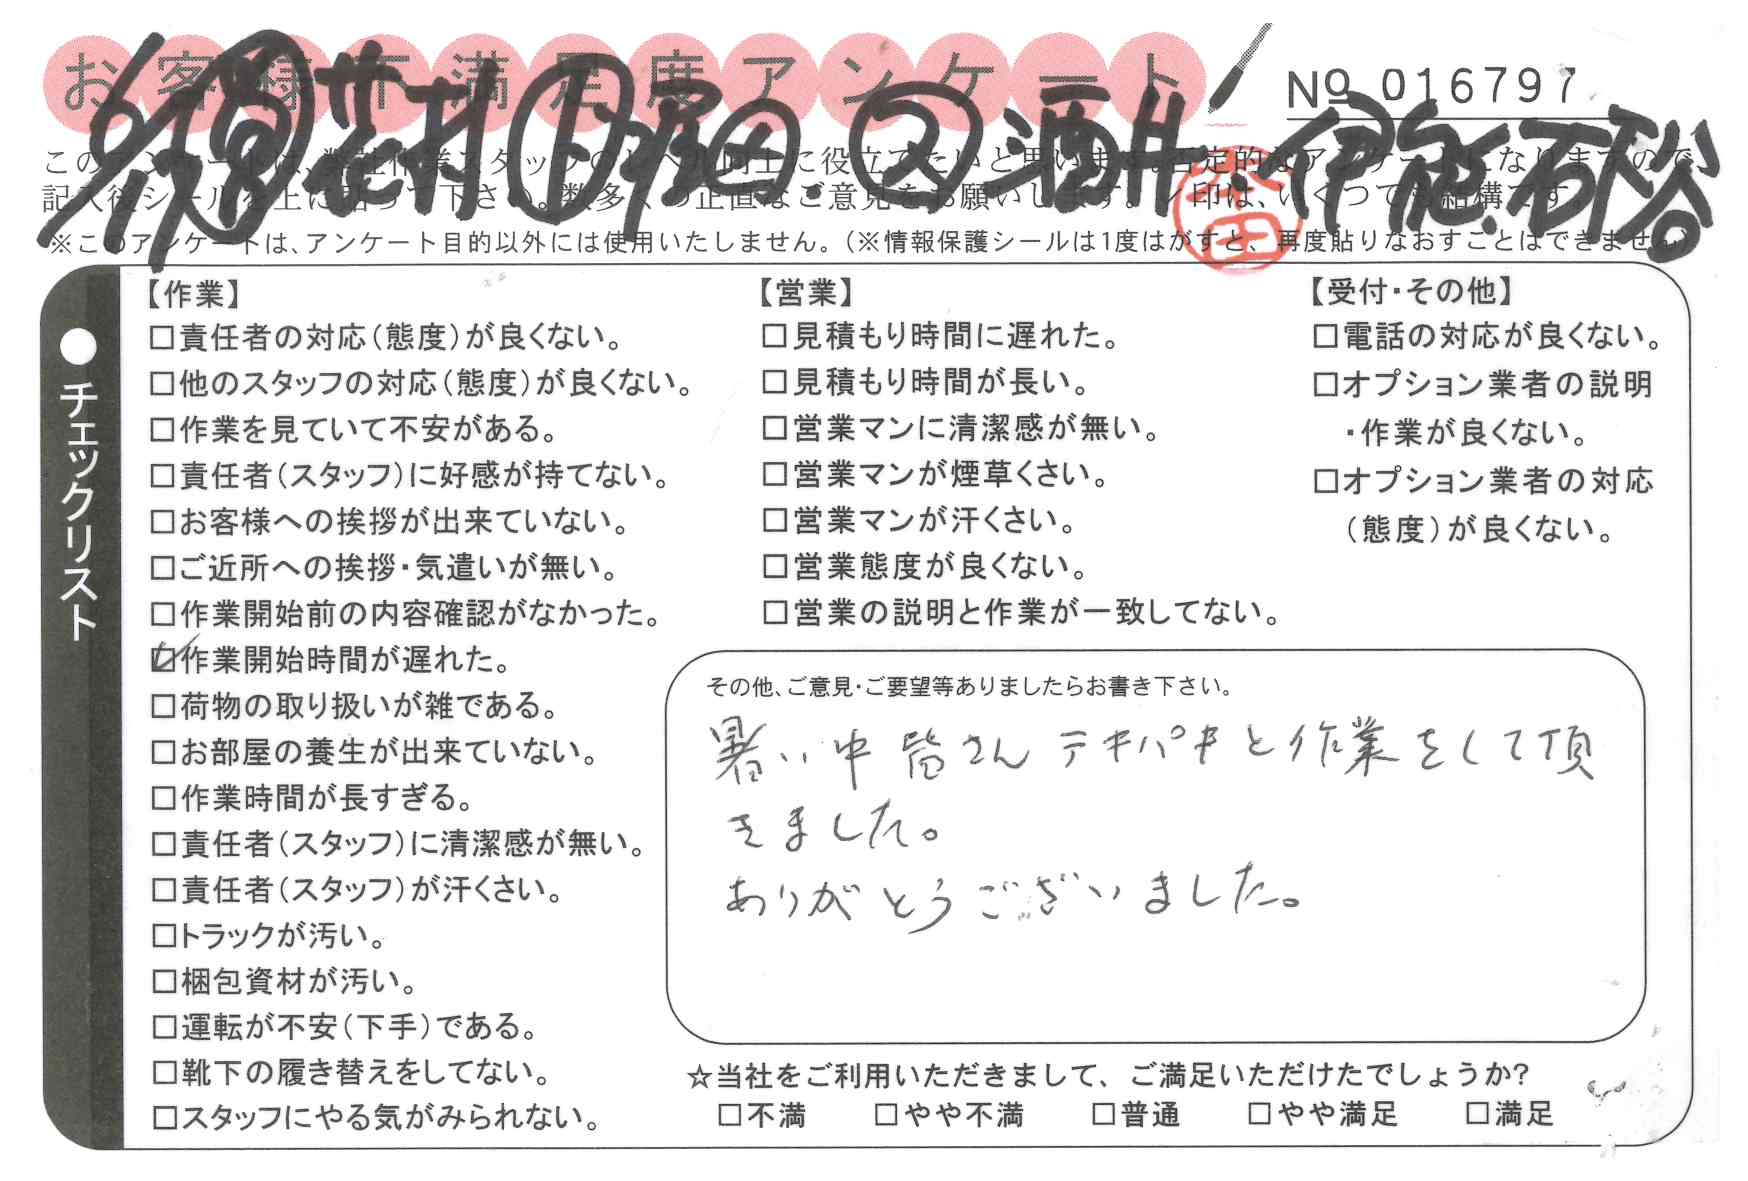 お客様不満足度アンケート
No 016797
このアンケートは、弊社作業スタッフのレベル向上に役立てたいと思います。否定的なアンケートになりますので、
記入後シールを上に貼って下さい。数多くの正直なご意見をお願いします。レ印は、いくつでも結構です。
※このアンケートは、アンケート目的以外には使用いたしません。（※情報保護シールは1度はがすと、再度貼りなおすことはできません）
●チェックリスト
【作業】
□責任者の対応（態度）が良くない。
□他のスタッフの対応（態度）が良くない。
□作業を見ていて不安がある。
□責任者（スタッフ）に好感が持てない。
□お客様への挨拶が出来ていない。
□ご近所への挨拶・気遣いが無い。
□作業開始前の内容確認がなかった。
☑作業開始時間が遅れた。
□荷物の取り扱いが雑である。
□お部屋の養生が出来ていない。
□作業時間が長すぎる。
□責任者（スタッフ）に清潔感が無い。
□責任者（スタッフ）が汗くさい。
□トラックが汚い。
□梱包資材が汚い。
□運転が不安（下手）である。
□靴下の履き替えをしてない。
□スタッフにやる気がみられない。
【営業】
□見積もり時間に遅れた。
□見積もり時間が長い。
□営業マンに清潔感が無い。
□営業マンが煙草くさい。
□営業マンが汗くさい。
□営業態度が良くない。
□営業の説明と作業が一致してない。
【受付・その他】
□電話の対応が良くない。
□オプション業者の説明
・作業が良くない。
□オプション業者の対応
（態度）が良くない。
その他、ご意見・ご要望等ありましたらお書き下さい。
暑い中皆さんテキパキと作業をして頂
きました。
ありがとうございました。
☆当社をご利用いただきまして、ご満足いただけたでしょうか?
□不満 □やや不満 □普通 □やや満足 □満足